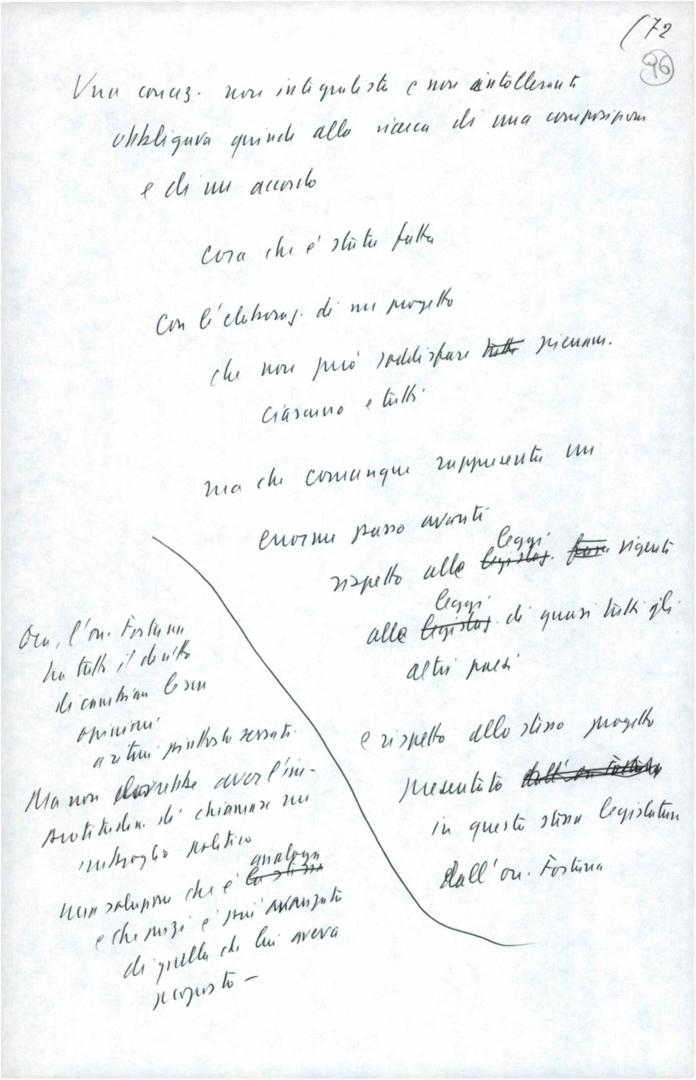 (72
96
Una concez. non integralista e non intollerante
obbligava quindi alla ricerca di una composizione
e di un accordo
cosa che è stata fatta
con l'elaboraz. di un progetto
che non può soddisfare tutti pienam.
ciascuno e tutti
ma che comunque rappresenta un
enorme passo avanti
leggi
rispetto alle legislaz. vigenti
leggi
alle legislaz. di quasi tutti gli
altri paesi
e rispetto allo stesso progetto
presentato dall'on. Fortuna
in questa stessa legislatura
dall'on. Fortuna
Ora, l'on. Fortuna
ha tutto il diritto
di cambiare le sue
opinioni
a ritmi piuttosto serrati.
Ma non dovrebbe aver l'in-
di chiamare un
imbroglio politico
analoga
una soluzione che è la stessa
e che anzi è più avanzata
di quella che lui aveva
proposto —